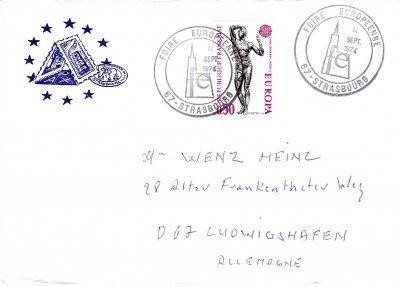 FOIRE EUROPÉENNE
14
SEPT.
1974
fe
67-STRASBOURG
RÉPUBLIQUE FRANÇAISE
0,50
EUROPA
FOIRE EUROPÉENNE
14
SEPT.
1974
fe
67-STRASBOURG
Mr WENZ HEINZ
98 Alter Frankentheler Weg
D 67 LUDWIGSHAFEN
ALLEMAGNE